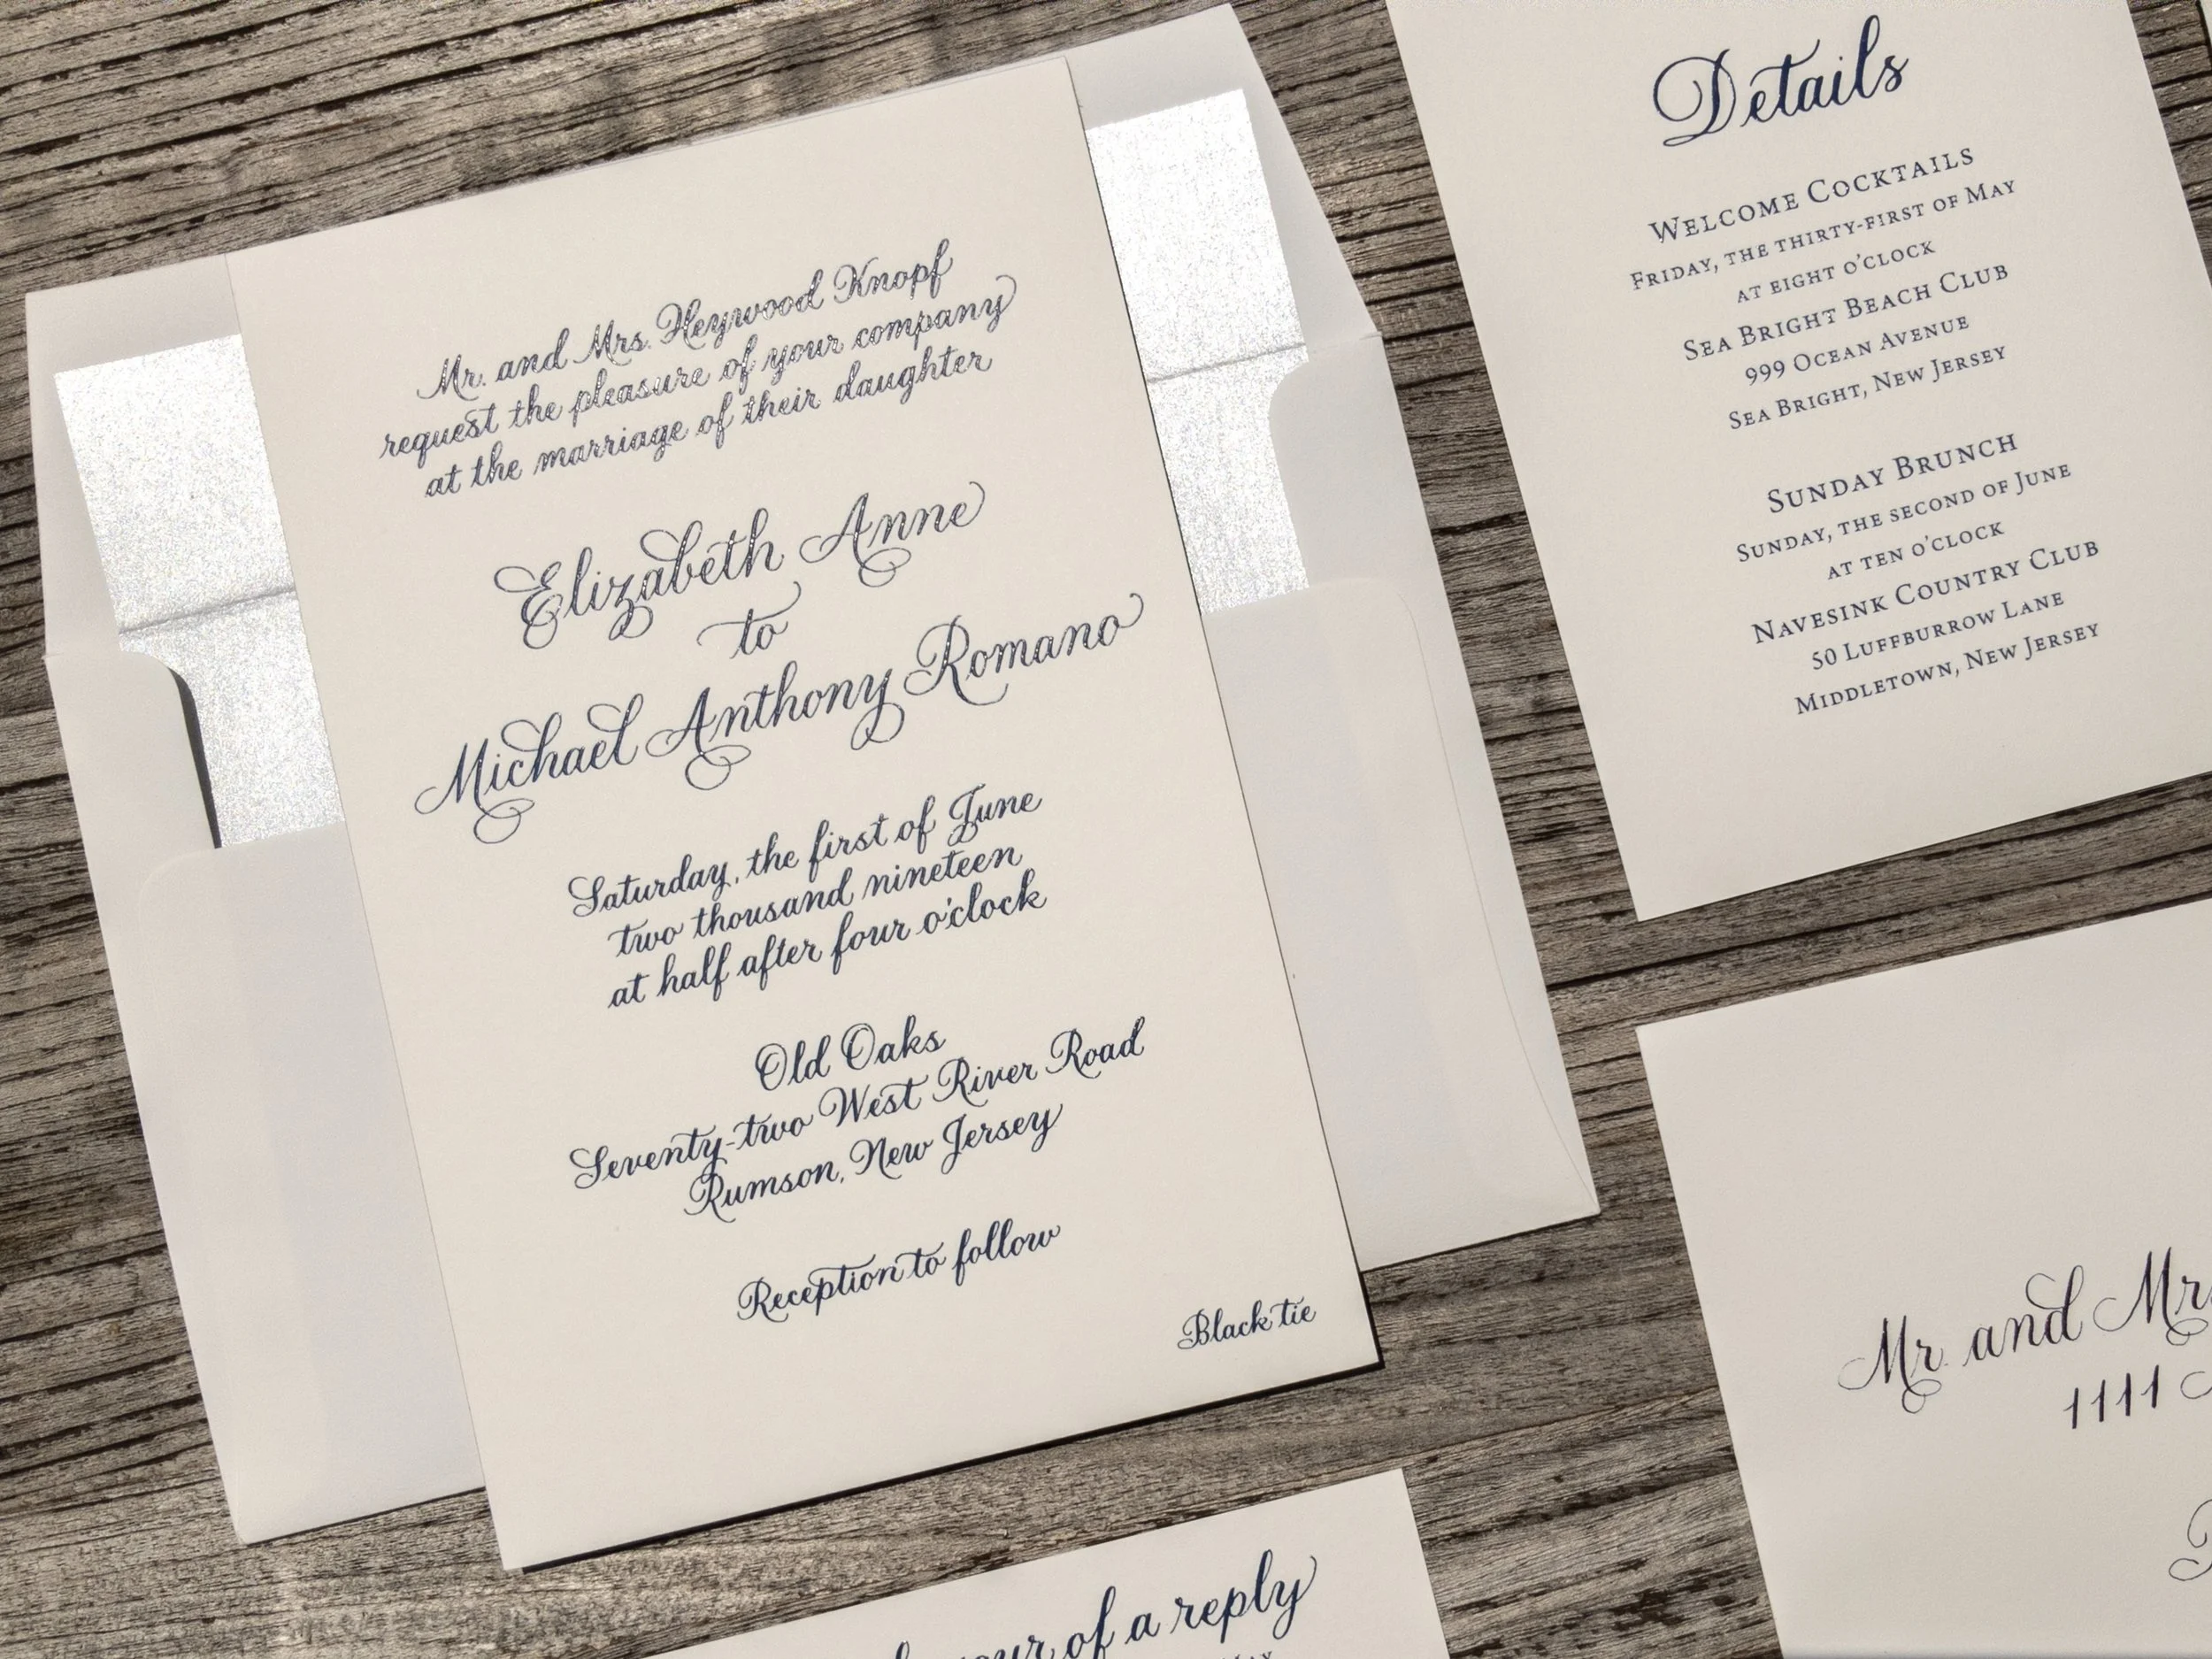 Mr. and Mrs. Heywood Knopf
request the pleasure of your company
at the marriage of their daughter
Elizabeth Anne
to
Michael Anthony Romano
Saturday, the first of June
two thousand nineteen
at half after four o'clock
Old Oaks
Seventy-two West River Road
Rumson, New Jersey
Reception to follow
Black tie
Details
WELCOME COCKTAILS
FRIDAY, THE THIRTY-FIRST OF MAY
AT EIGHT O'CLOCK
SEA BRIGHT BEACH CLUB
999 OCEAN AVENUE
SEA BRIGHT, NEW JERSEY
SUNDAY BRUNCH
SUNDAY, THE SECOND OF JUNE
AT TEN O'CLOCK
NAVESINK COUNTRY CLUB
50 LUFFBURROW LANE
MIDDLETOWN, NEW JERSEY
Mr. and Mr
1111
of a reply